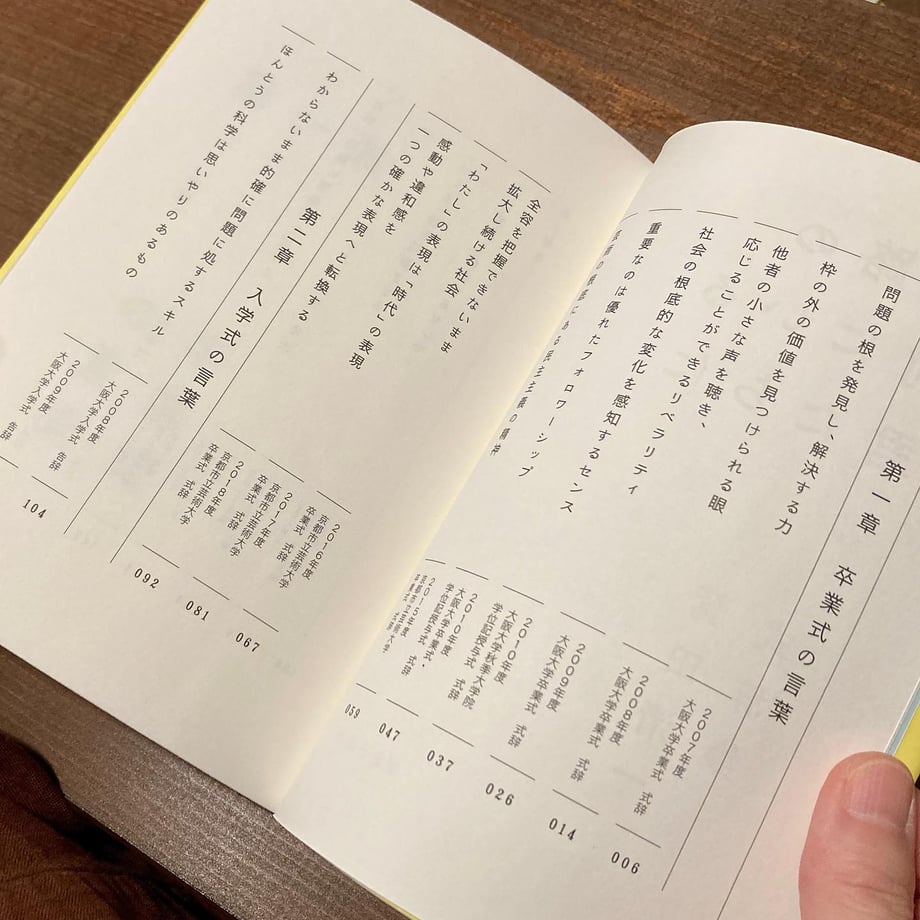 第一章 卒業式の言葉
問題の根を発見し、解決する力
2007年度
大阪大学卒業式 式辞
006
枠の外の価値を見つけられる眼
2008年度
大阪大学卒業式 式辞
014
他者の小さな声を聴き、
応じることができるリベラリティ
2009年度
大阪大学卒業式 式辞
026
社会の根底的な変化を感知するセンス
2010年度
大阪大学秋季大学院
学位記授与式 式辞
037
重要なのは優れたフォロワーシップ
2010年度
大阪大学卒業式・
学位記授与式 式辞
047
の根底にある民主主義の精神
2015年度
京都市立芸術大学
卒業式 式辞
059
全容を把握できないまま
拡大し続ける社会
2016年度
京都市立芸術大学
卒業式 式辞
067
「わたし」の表現は「時代」の表現
2017年度
京都市立芸術大学
卒業式 式辞
081
感動や違和感を
一つの確かな表現へと転換する
2018年度
京都市立芸術大学
卒業式 式辞
092
第二章 入学式の言葉
わからないまま的確に問題に処するスキル
2008年度
大阪大学入学式 告辞
104
ほんとうの科学は思いやりのあるもの
2009年度
大阪大学入学式 告辞